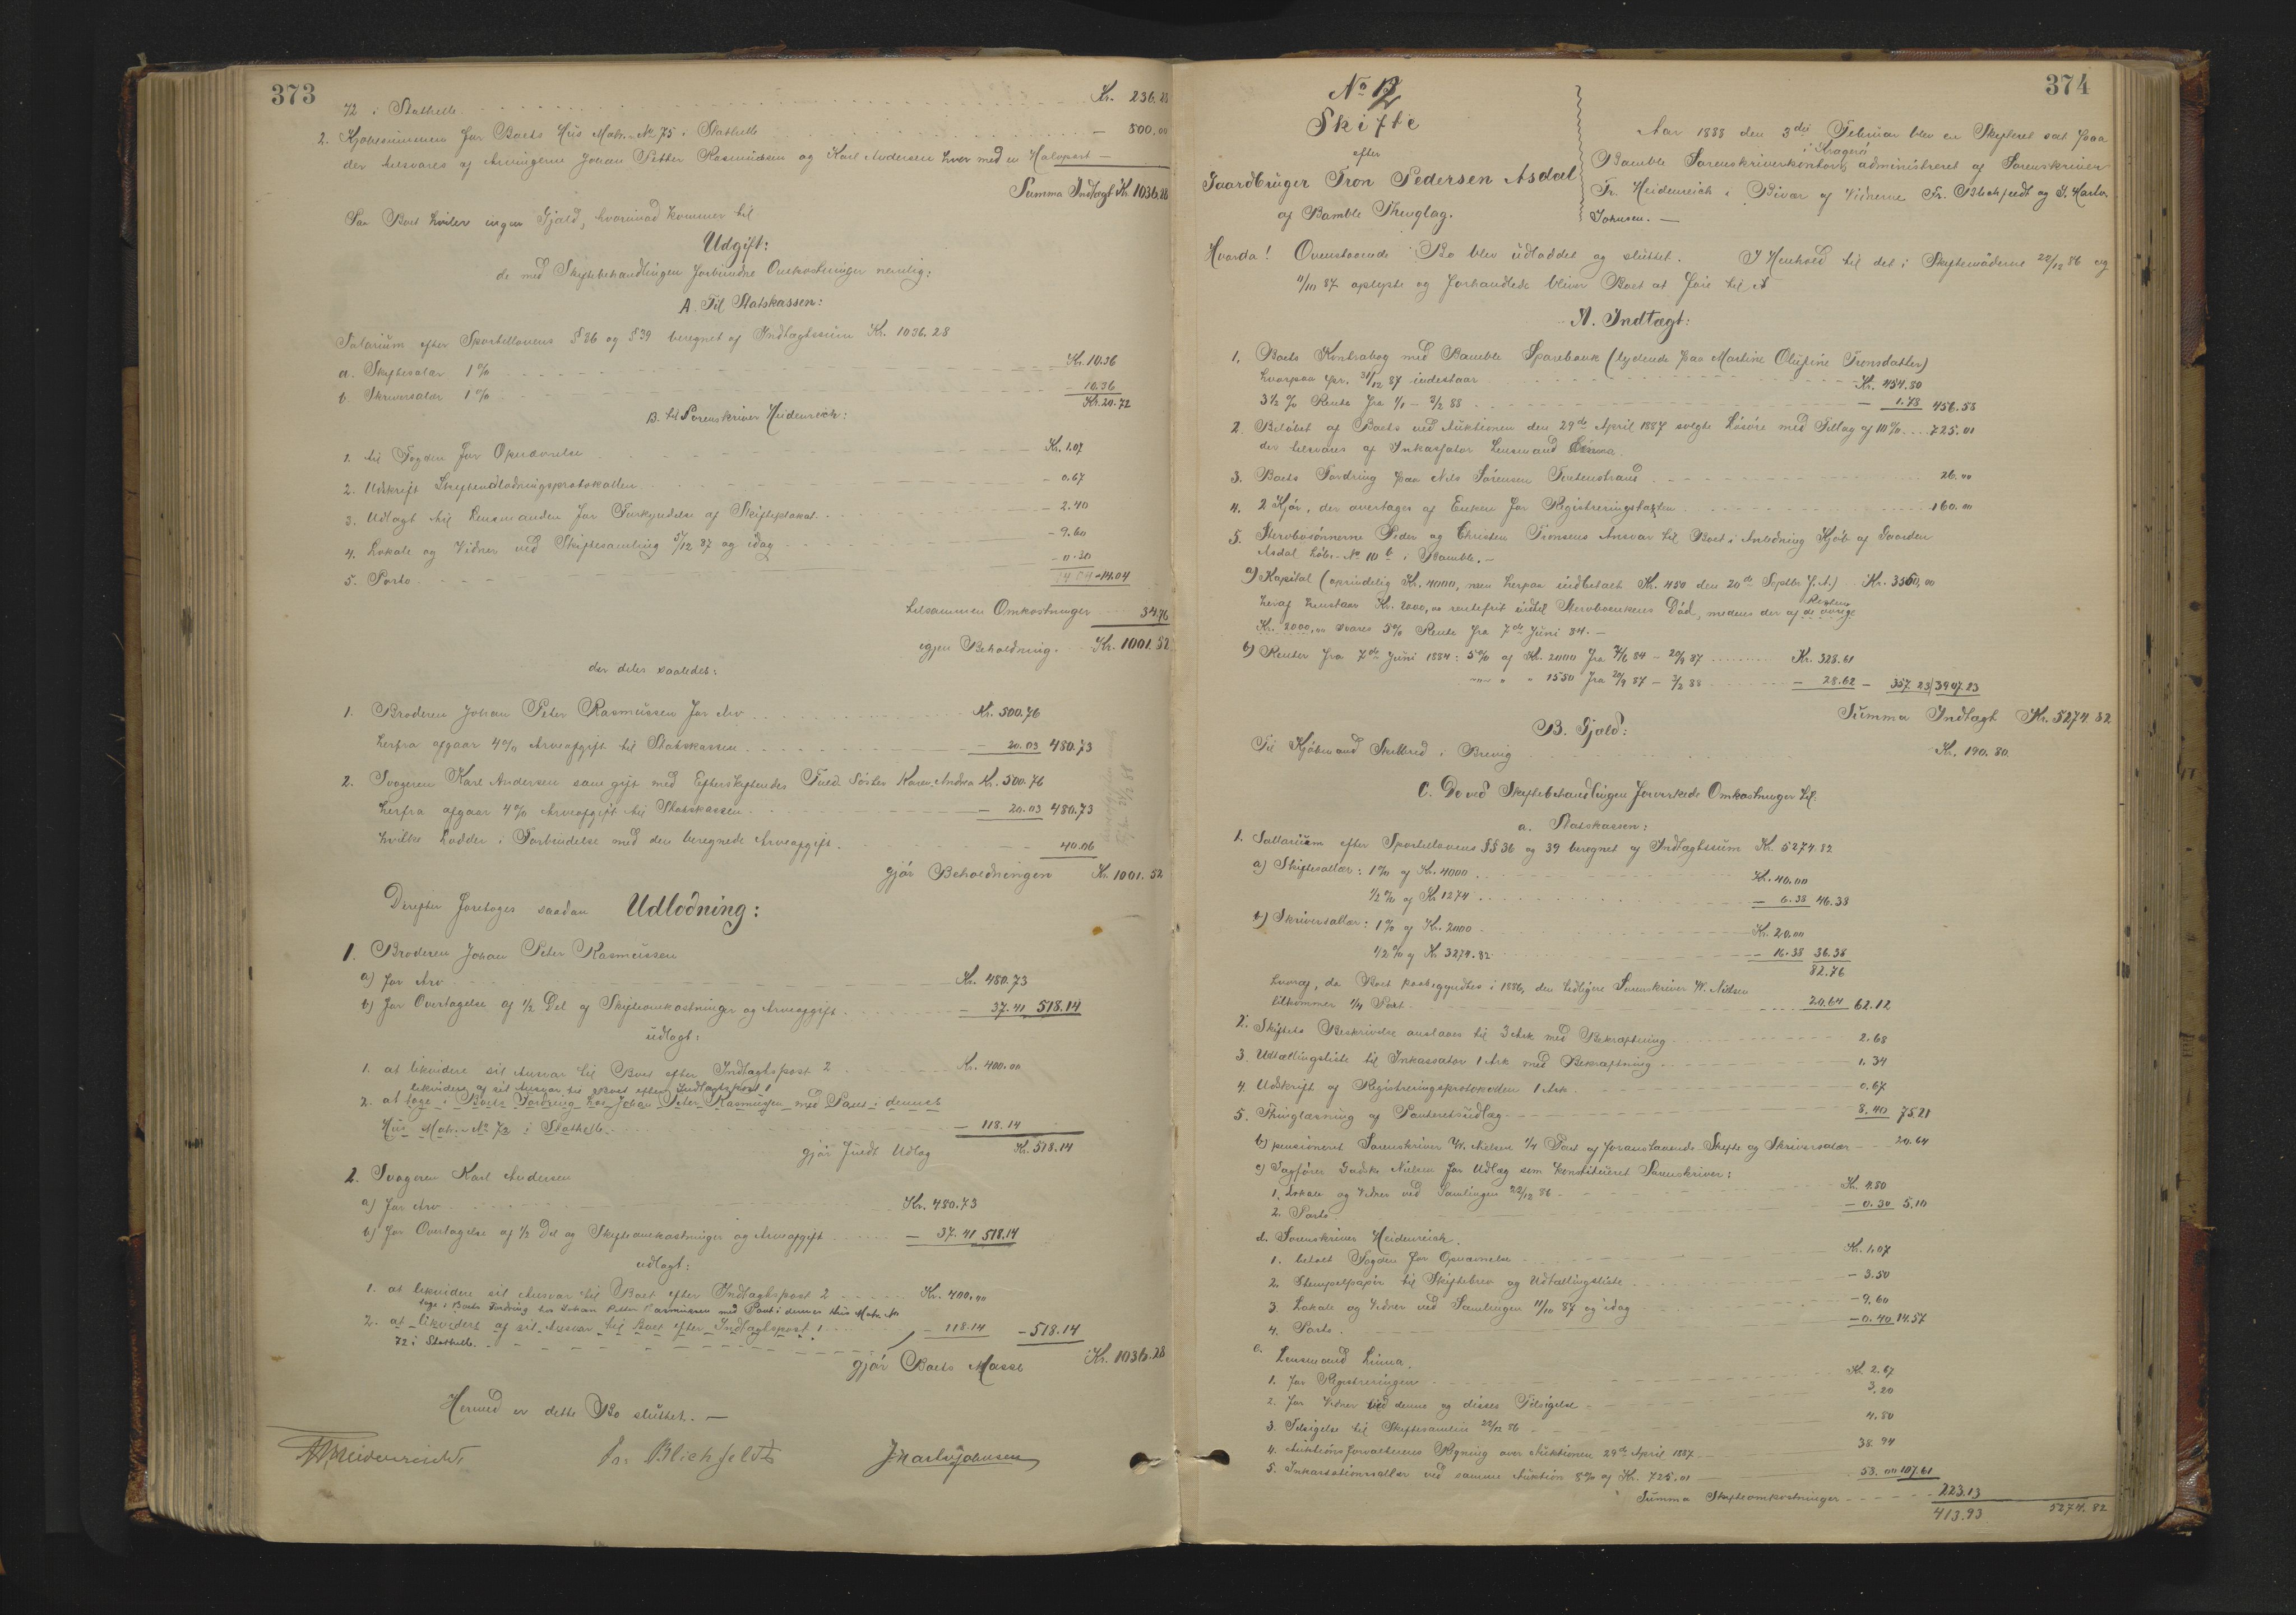 373
72 i Stathelle Kr. 236.28
2. Kjøbesummen for Boets Hus Matr. No 75 i Stathelle — 800.00
der tilsvares af Arvingerne Johan Petter Rasmussen og Karl Andersen hver med en Halvpart —
Summa Indtægt Kr. 1036.28
Paa Boet hviler ingen Gjæld, hvorimod kommer til
Udgift:
de med Skiftebehandlingen forbundne Omkostninger nemlig:
A. Til Statskassen:
Salarium efter Sportellovens § 36 og § 39 beregnet af Indtægtssum Kr. 1036.28
a. Skiftesalær 1 % Kr. 10.36
b. Skriversalær 1 % — 10.36
Kr. 20.72
B. til Sorenskriver Heidenreich:
1. til Fogden for Opnævnelse Kr. 1.07
2. Udskrift Skifteudlodningsprotokollen — 0.67
3. Udlagt til Lensmanden for Forkyndelse af Skifteplakat — 2.40
4. Lokale og Vidner ved Skiftesamling 5/12 87 og idag — 9.60
5. Porto — 0.30
14.04 — 14.04
tilsammen Omkostninger 34.76
igjen Beholdning. Kr. 1001.52
der deles saaledes:
1. Broderen Johan Peter Rasmussen for Arv Kr. 500.76
herfra afgaar 4 % Arveafgift til Statskassen — 20.03 480.73
2. Svogeren Karl Andersen som gift med Efterskiftendes Fuld Søster Karen Andrea Kr. 500.76
herfra afgaar 4 % Arveafgift til Statskassen — 20.03 480.73
hvilke Lodder i Forbindelse med den beregnede Arveafgift 40.06
gjør Beholdningen Kr. 1001.52
Derefter foretoges saadan Udlodning:
1. Broderen Johan Peter Rasmussen
a) for Arv Kr. 480.73
b) for Overtagelse af 1/2 Del af Skifteomkostninger og Arveafgift — 37.41 518.14
udlagt:
1. at likvidere sit Ansvar til Boet efter Indtægtspost 2 Kr. 400.00
likvidere af sit Ansvar til Boet efter Indtægtspost 1
2. at tage i Boets Fordring hos Johan Peter Rasmussen med Pant i dennes
Hus Matr. No 72 i Stathelle — 118.14
gjør fuldt Udlæg Kr. 518.14
2. Svogeren Karl Andersen
a) for Arv Kr. 480.73
b) for Overtagelse af 1/2 Del og Skifteomkostninger og Arveafgift — 37.41 518.14
udlagt:
1. at likvidere sit Ansvar til Boet efter Indtægtspost 2 Kr. 400.00
tage i Boets Fordring hos Johan Petter Rasmussen med Pant i dennes Hus Matr. No
2. at likvidere af sit Ansvar til Boet efter Indtægtspost 1 — 118.14 — 518.14
72 i Stathelle
gjør Boets Masse Kr. 1036.28
Hermed er dette Bo sluttet. —
Heidenreich Fr. Blichfeldt J Martin Johnsen
374
No 12
Skifte
efter
Gaardbruger Tron Pedersen Asdal
af Bamble Thinglag.
Aar 1888 den 3die Februar blev en Skifteret sat paa
i Kragerø
Bamble Sorenskriverkontor, administreret af Sorenskriver
Fr. Heidenreich i Bivær af Vidnerne Fr. Blichfeldt og J. Martin
Johnsen. —
Hvorda! Ovenstaaende Bo blev udloddet og sluttet. I Henhold til det i Skiftemøderne 22/12 86 og
11/10 87 oplyste og forhandlede bliver Boet at føre til
A. Indtægt:
1. Boets Kontrabog med Bamble Sparebank (lydende paa Martine Olufine Tronsdatter)
hvorpaa pr. 31/12 87 indestaar Kr. 454.80
3 1/2 % Rente fra 1/1 — 3/2 88 — 1.78 456.58
2. Beløbet af Boets ved Auktionen den 29de April 1887 solgte Løsøre med Tillæg af 10 % 725.01
der tilsvares af Inkassator Lensmand Linna.
3. Boets Fordring paa Nils Sørensen 26.00
4. 2 Kjør, der overtages af Enken for Registreringstaxten 160.00
5. Stervbosønnerne Peder og Christen Tronsens Ansvar til Boet i Anledning Kjøb af Gaarden
Asdal Løbe-No 10 b i Bamble. —
a) Kapital (oprindelig Kr. 4000, men herpaa indbetalt Kr. 450 den 20de Septbr f. A.) Kr. 3550,00
heraf henstaar Kr. 2000,00 rentefrit indtil Stervboenkens Død, medens der af de øvrige
Kr. 2000,00 svares 5 % Rente fra 7de Juni 84. —
b) Renter fra 7de Juni 1884: 5 % af Kr. 2000 fra 7/6 84 — 20/9 87 Kr. 328.61
" " 1550 fra 20/9 87 — 3/2 88 — 28.62 — 357.23 3907.23
Summa Indtægt Kr. 5274.82
B. Gjæld:
Til Kjøbmand Skilbred i Brevig Kr. 190.80
C. De ved Skiftebehandlingen forvirkede Omkostninger til:
a. Statskassen:
1. Sallarium efter Sportellovens §§ 36 og 39 beregnet af Indtægtssum Kr. 5274.82
a) Skiftesallær: 1 % af Kr. 4000 Kr. 40.00
1/2 % af Kr 1274 — 6.38 46.38
b) Skriversallær: 1 % af Kr. 2000 Kr. 20.00
1/2 % af Kr 3274.82 — 16.38 36.38
82.76
hvoraf, da Boet paabegyndtes i 1886, den tidligere Sorenskriver W. Nielsen
tilkommer 1/4 Part 20.64 62.12
2. Skiftets Beskrivelse anslaaes til 3 Ark med Bekræftning 2.68
3. Udtællingsliste til Inkassator 1 Ark med Bekræftning 1.34
4. Udskrift af Registreringsprotokollen 1 Ark 0.67
5. Thinglæsning af Panteretsudlæg 8.40 75.21
b) pensioneret Sorenskriver W. Nielsen 1/4 Part af foranstaaende Skifte og Skriversalær 20.64
c) Sagfører Gudske Nielsen for Udlæg som konstitueret Sorenskriver:
1. Lokale og Vidner ved Samlingen 22/12 86 Kr. 4.80
2. Porto — 0.30 5.10
d. Sorenskriver Heidenreich.
1. betalt Fogden for Opnævnelse Kr. 1.07
2. Stempelpapir til Skiftebrev og Udtællingsliste — 3.50
3. Lokale og Vidner ved Samlingen 11/10 87 og idag — 9.60
4. Porto — 0.40 14.57
e. Lensmand Linna.
1. for Registreringen Kr. 2.67
2. for Vidner ved denne og disses Tilsigelse 3.20
3. Tilsigelse til Skiftesamlin 22/12 86 4.80
4. Auktionsforvalterens Regning over Auktionen 29de April 1887 38.94
5. Inkassationssallær ved samme Auktion 8 % af Kr. 725.01 58.00 107.61
Summa Skifteomkostninger 223.13
413.93 5274.82